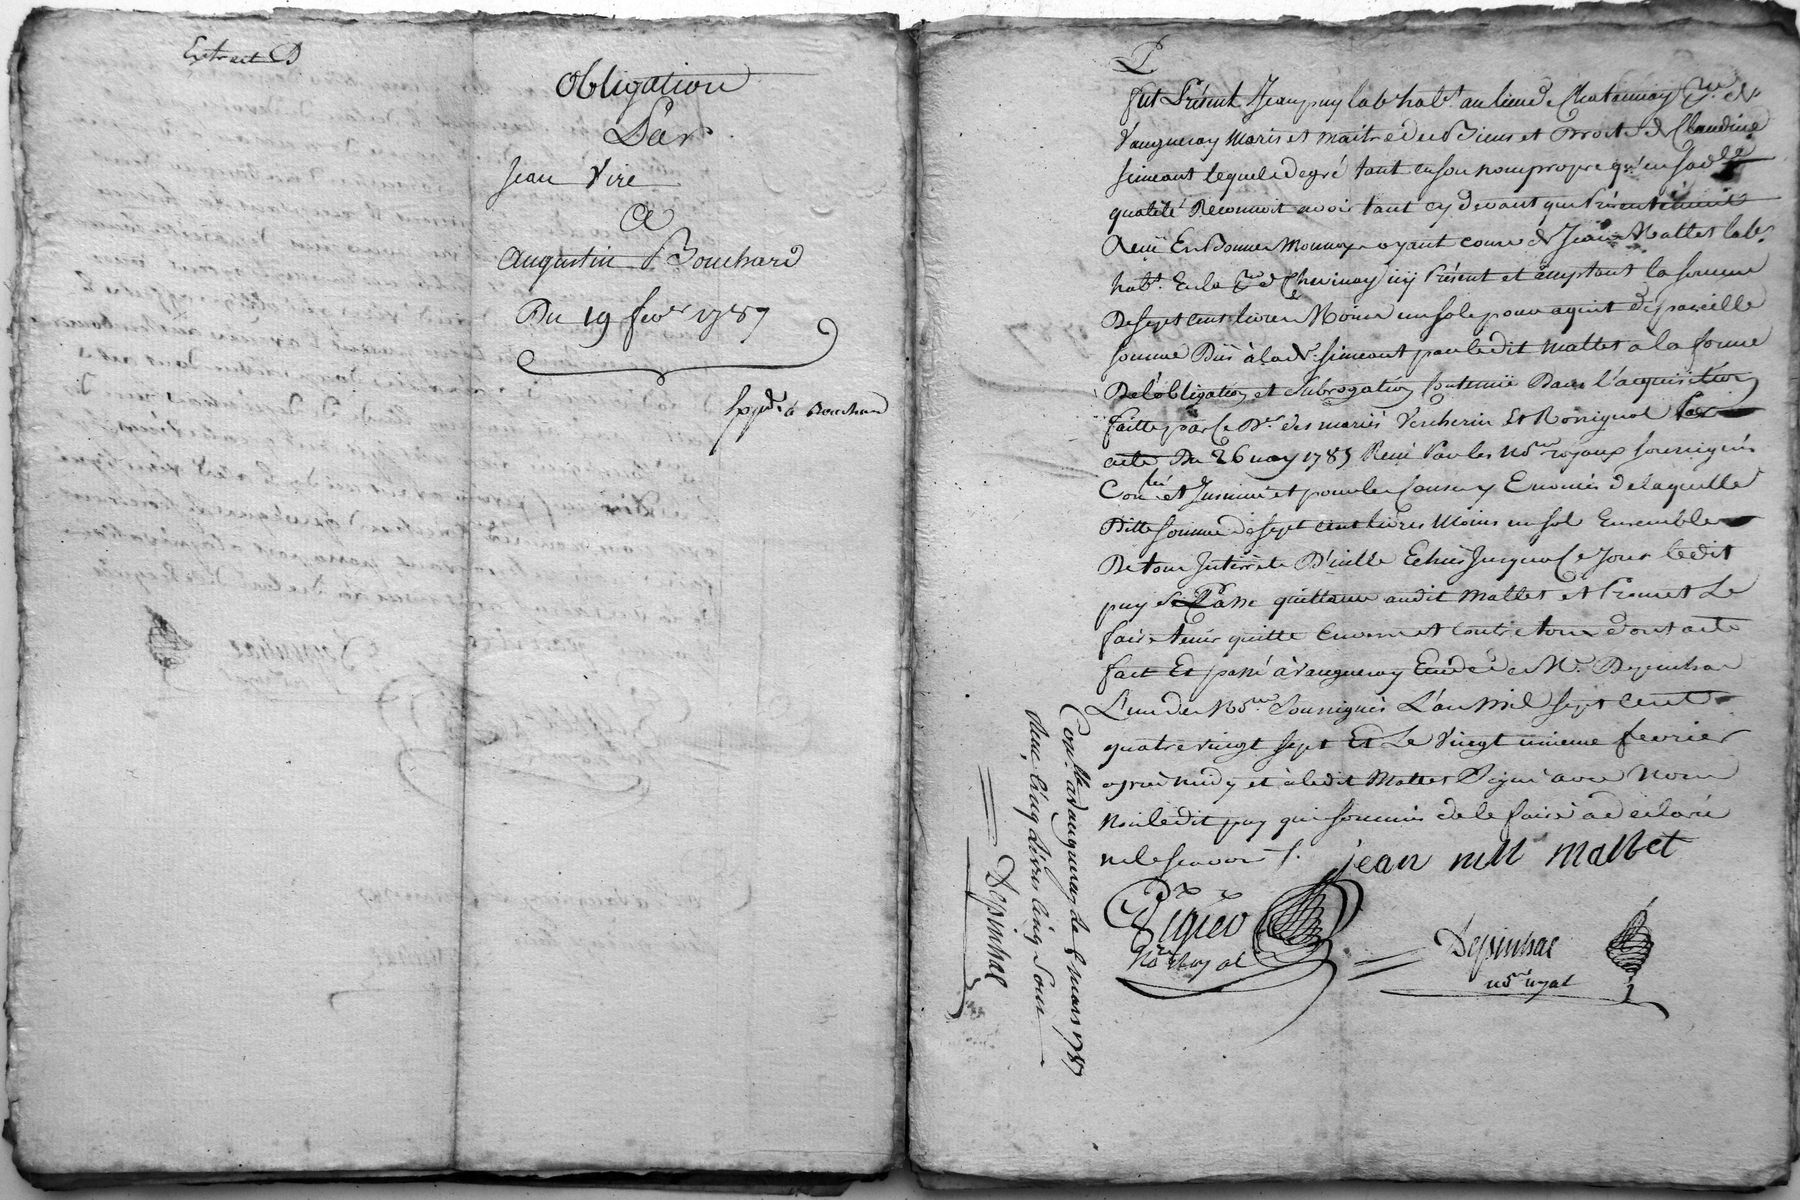 Extrait D
Obligation
Par
Jean Viré
A
Augustin Bouchard
Du 19 fevr 1787
Exped. à Bouchard
fut Présent Jean puy lab. hab. au lieu de Chatannay
Vaugneray Maris et Maitre des Biens et Droits de Claudine
simeant lequel de gré tant en son nom propre qu'en sadte
qualité Reconnoit avoir tant cy devant que Présentement
Reçu En Bonne Monnoye ayant cours de Jean Mallet lab.
hab. En la de Chevinay icy Présent et acceptant la somme
De sept cent livres Moins un sol pour de pareille
somme Düe à lad. simeant par ledit Mallet a la forme
De l'obligation et Subrogation Contenüe Dans l'acquisition
faitte par Ce Dr. des mariés Vercherin Et Ronignol Par
acte Du 26 may 1785 Reçu Par les Nores royaux soussignés
Conlé et Insinué et pour les Causes y Enoncés de laquelle
Ditte somme de sept cent livres Moins un sol Ensemble
De tous Interrets D'icelle Echus Jusqu'a Ce Jour ledit
puy Passe quittance audit Mallet et Promet Le
faire tenir quitte Envers et Contre tous dont acte
fait Et passé à Vaugneray Etude de Me. Depinhac
L'un des Nores. Soussignés L'an Mil sept Cent
quatre vingt sept Et Le Vingt unieme fevrier
après midy et à ledit Mallet Signé avec Nous
Non ledit puy qui sommé de le faire a declaré
ne le scavoir f.
jean Mallet
Nore Royal
Depinhac
nore royal
Conlé à Vaugneray le 6 mars 1787
Reçu Cinq Livres Cinq Sous
Depinhac